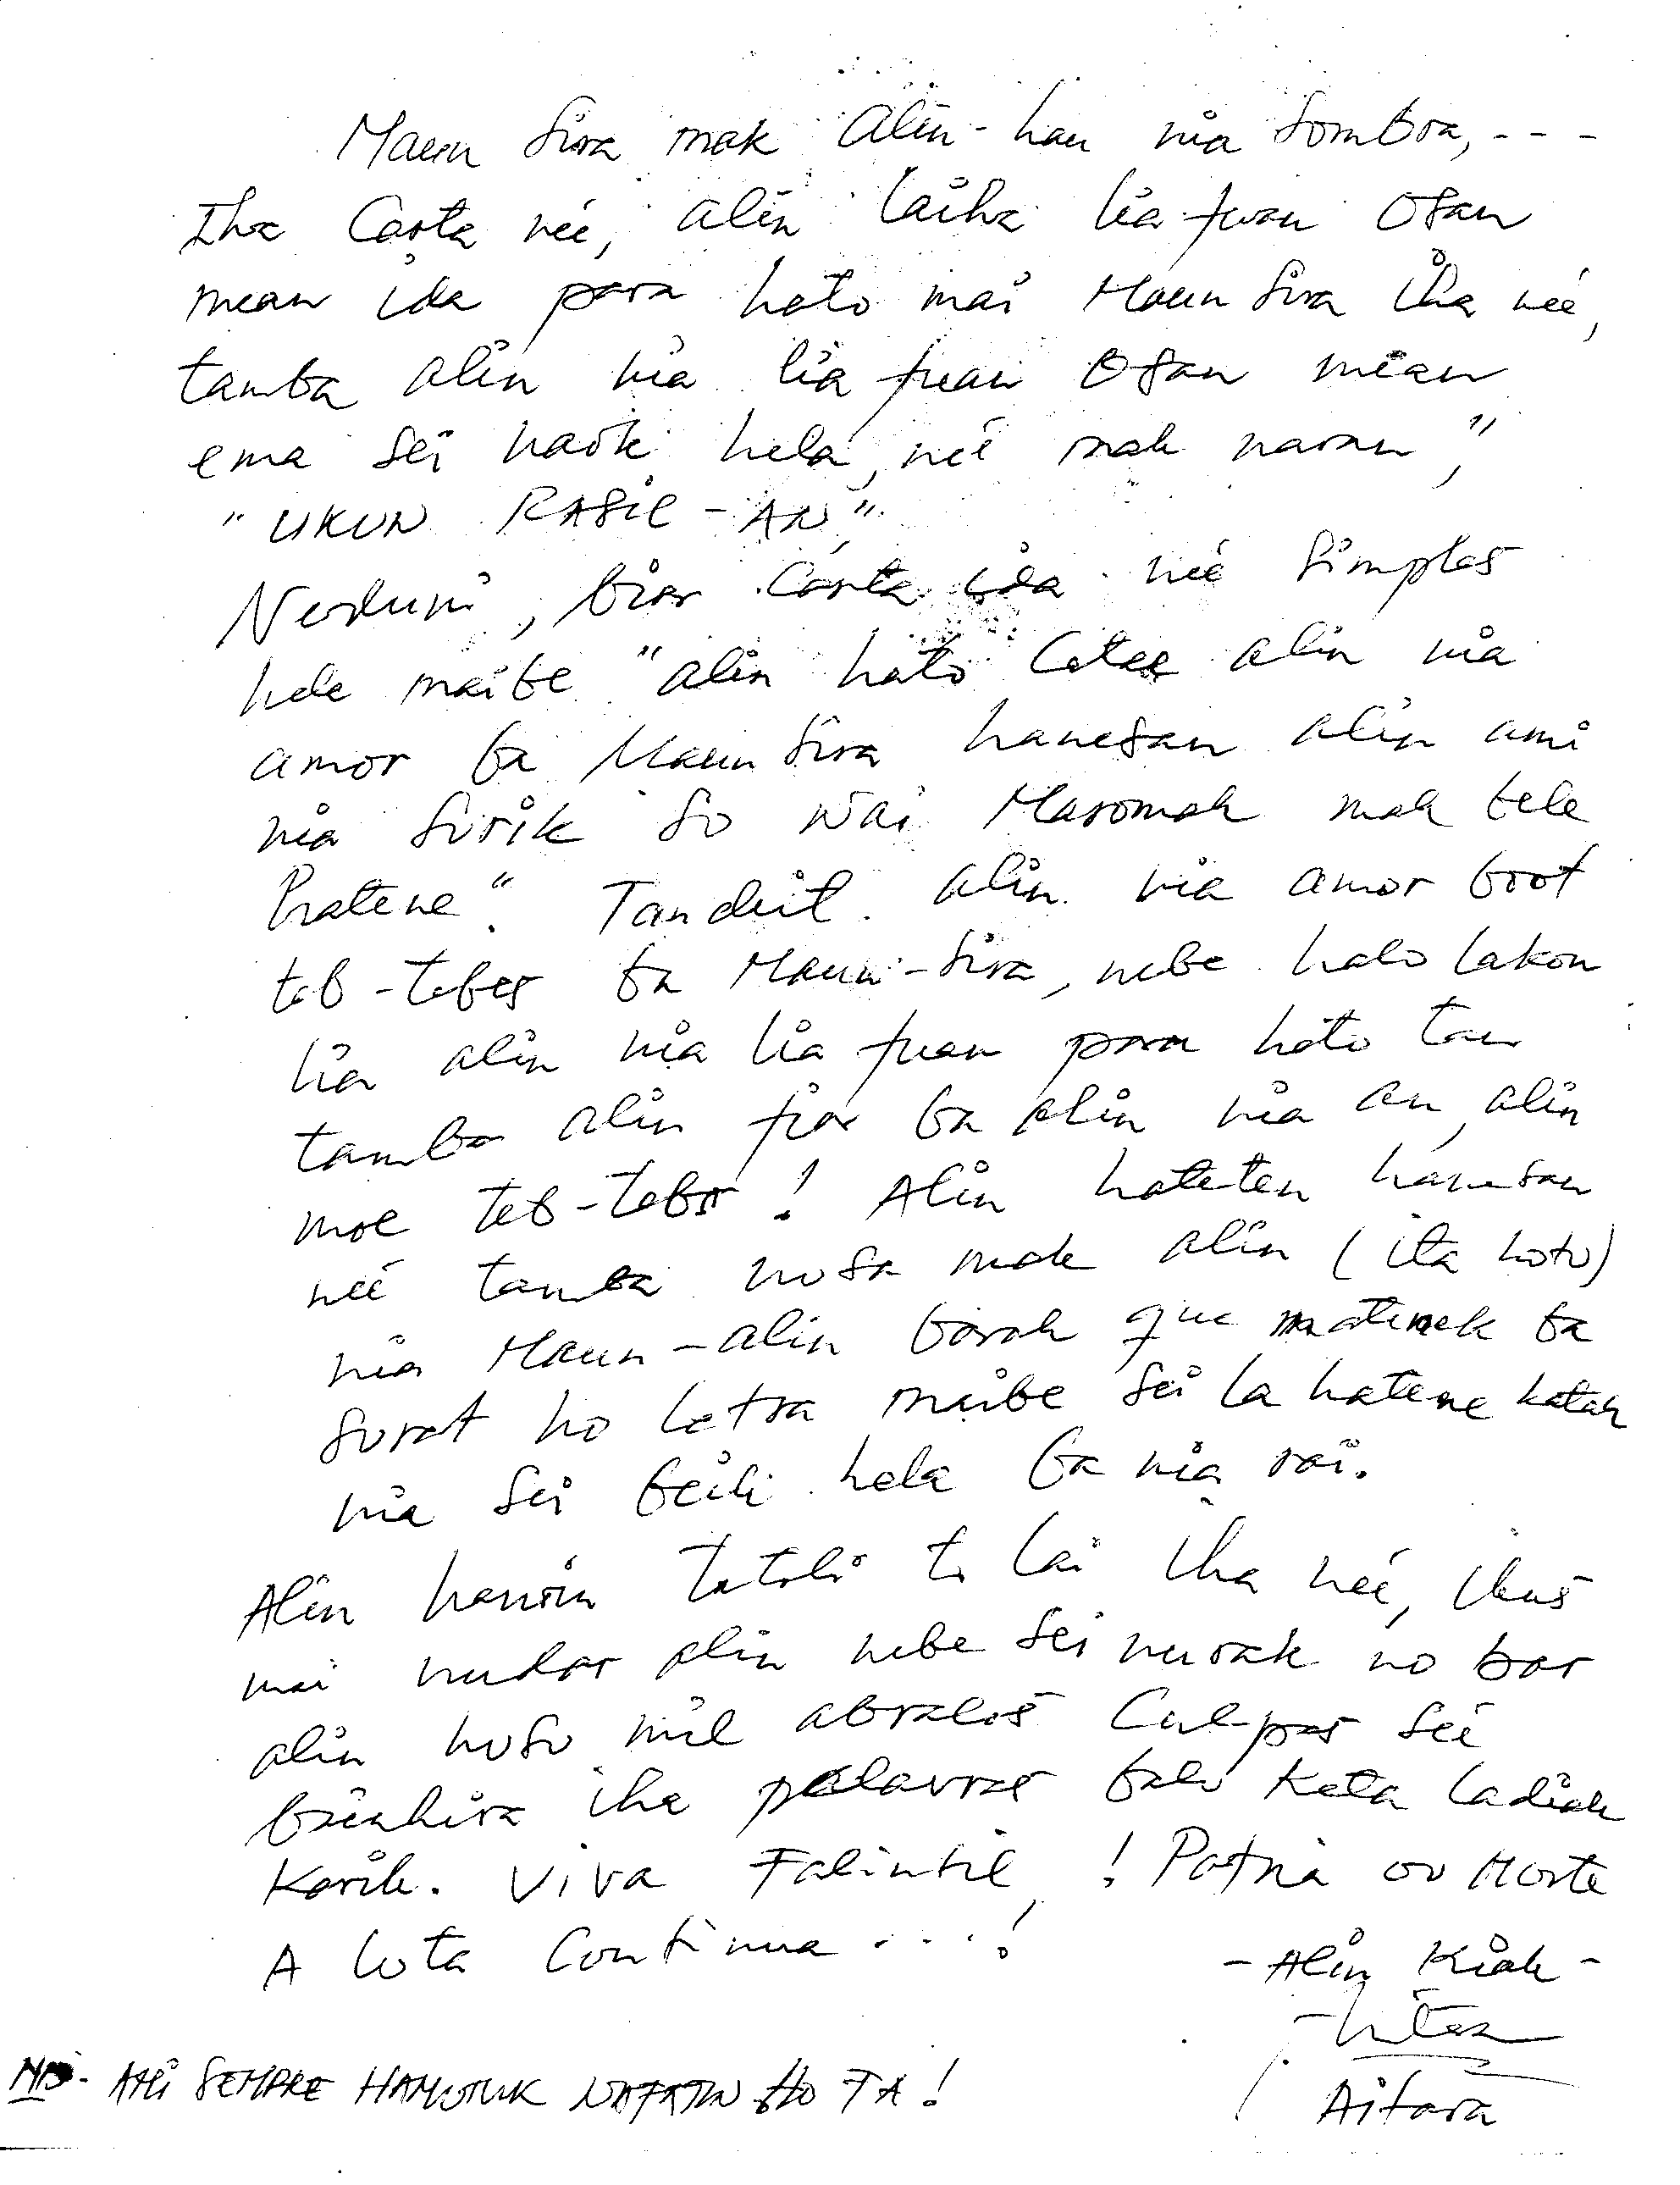 Maun Sira mak alin-hau nia Sombra, - - -
Iha Carta neé, alin laiha lia fuan Osan
mean ida para hato mai Maun Sira iha neé,
tamba alin nia lia fuan Osan mean
ema sei naok hela, neé mak naran,"
"UKUN RASIC-AN"
Neduni, bior Carta ida neé Simples
hele maibe "alin hato Catac alin nia
amor ba Maun Sira hanesan alin ami
nia Surik So Nai Maromak mak bele
hatene". Tanduit alin nia amor boot
teb-tebes ba Maun-Sira, nebe halo lakon
lia alin nia lia fuan para hato tau
tamba alin fiar ba alin nia an, alin
moe teb-tebes! Alin hateten hanesan
neé tamba nosa mak alin (ita hotu)
nia Maun-alin barak que matenek ba
Surat ho letra maibe sei la hatene katak
nia sei beik hela ba nia rai.
Alin hanoin totoli to lai iha neé, ikus
mai nudar alin nebe sei nurak no bar
alin husu mil abraços Culpas seé
bainhira iha palavras balu keta ladiak
Karik. Viva Falintil! Patria ou Morte
A luta Continua . . . . !
- Alin Kiak -
Aitara
NB- AMI SEMPRE HAMUTUK NAFATIN HO TA!